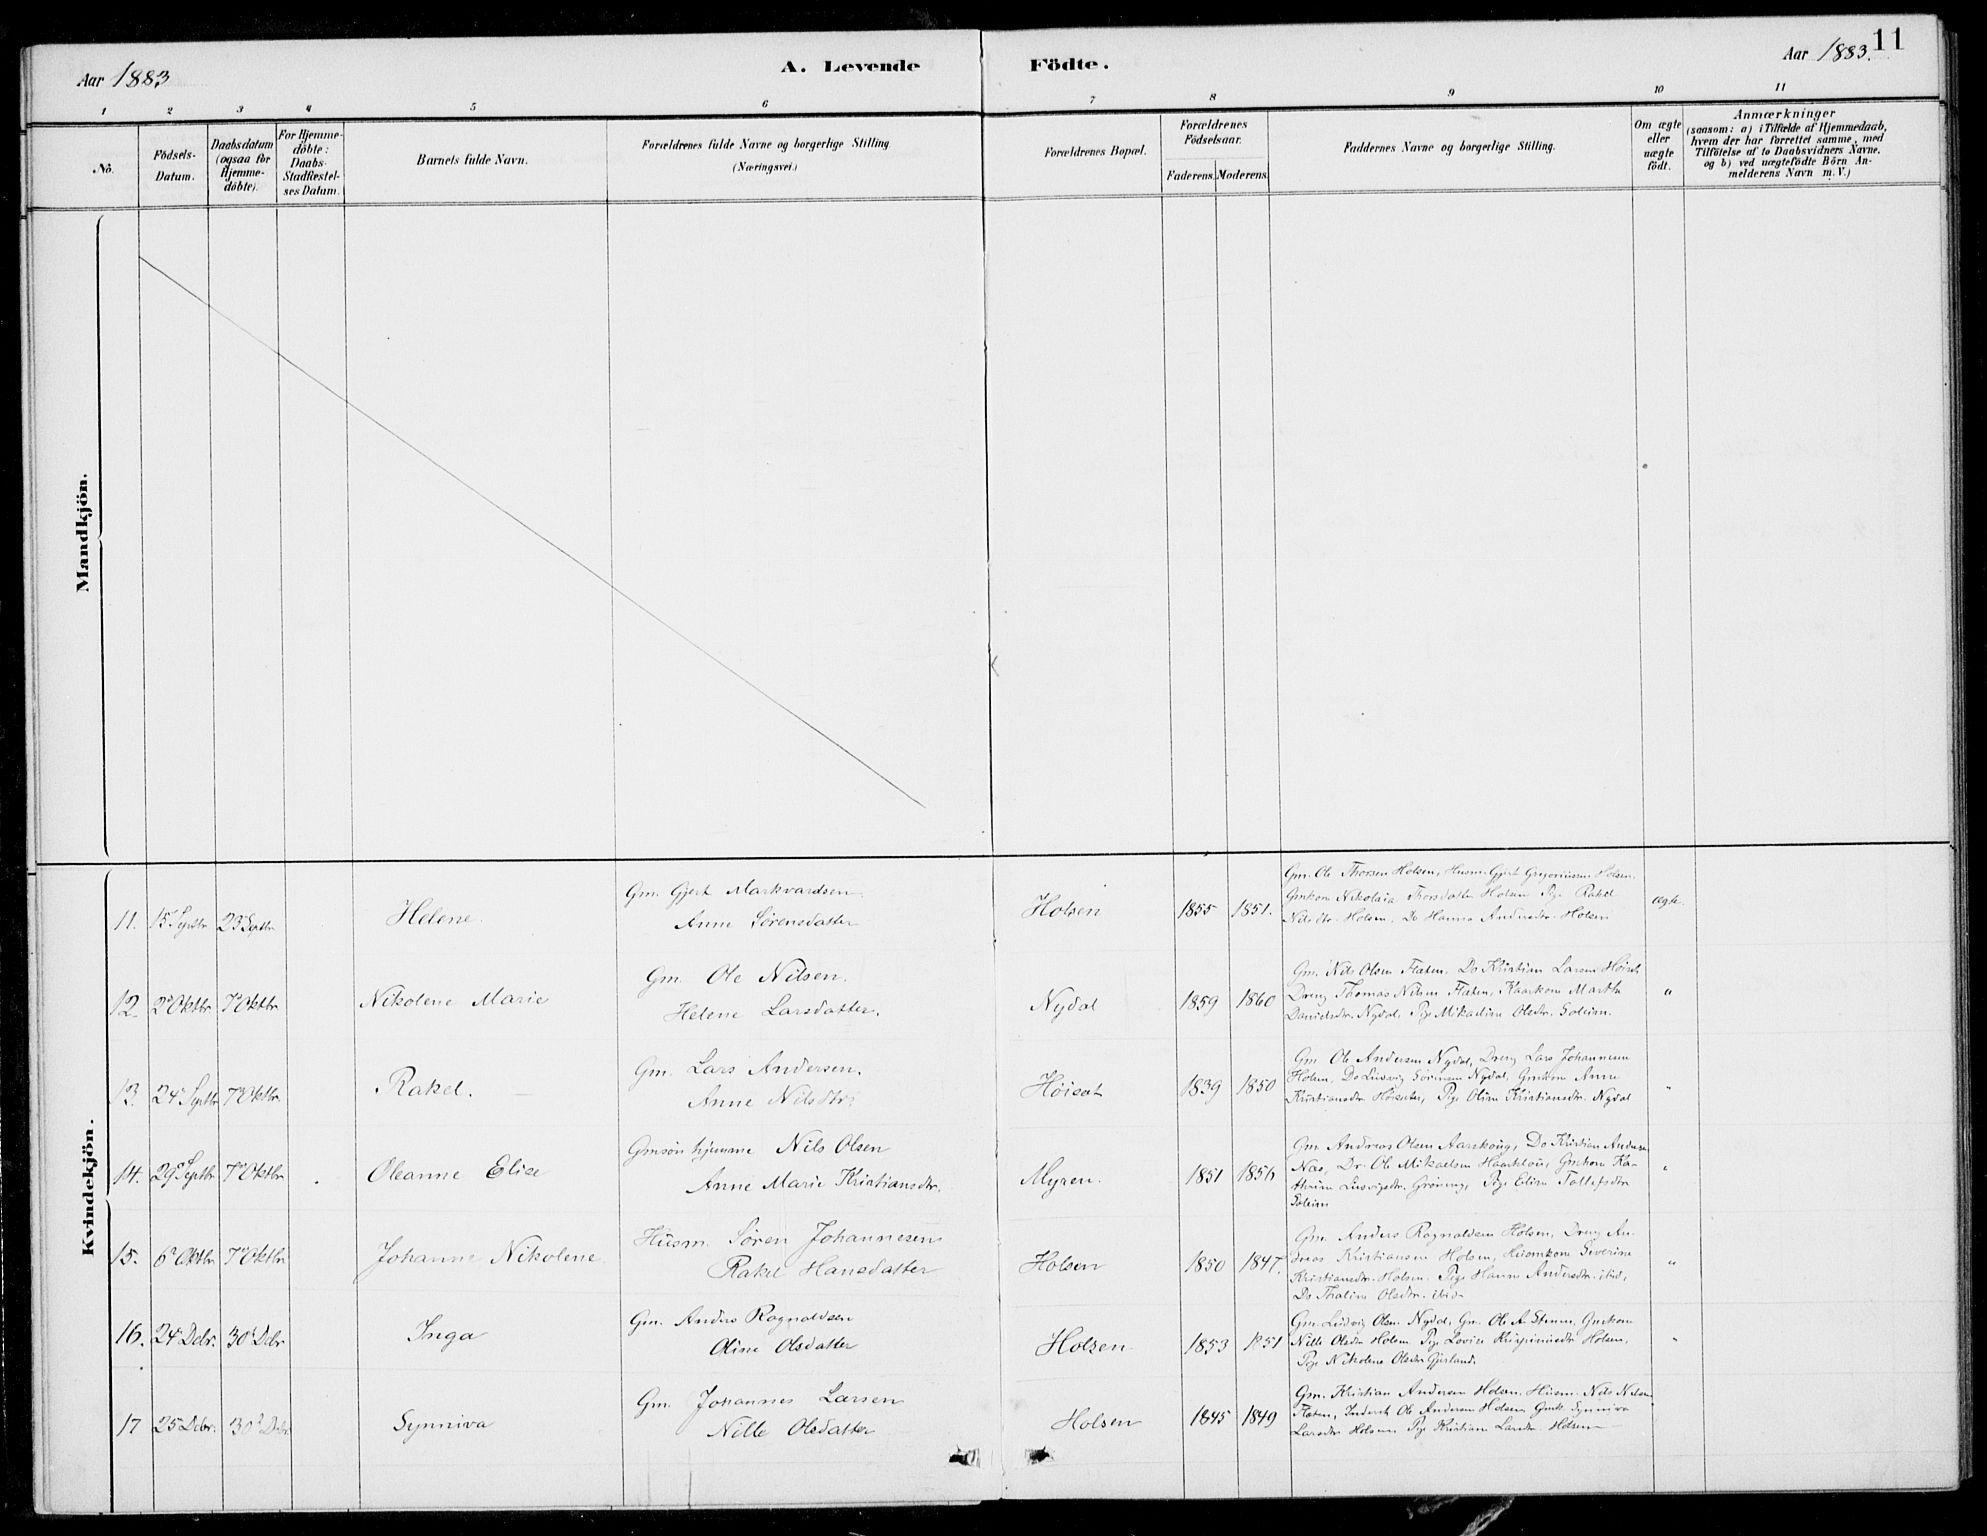 Aar 1883
A. Levende Födte.
Aar 1883. 11
1 2 3 4 5 6 7 8 9 10 11
No.
Födsels-Datum.
Daabsdatum (ogsaa for Hjemme-döbte).
For Hjemme-döbte: Daabs-Stadfæstel-ses Datum.
Barnets fulde Navn.
Forældrenes fulde Navne og borgerlige Stilling (Næringsvei.)
Forældrenes Bopæl.
Forældrenes Födselsaar.
Faderens. Moderens.
Faddernes Navne og borgerlige Stilling.
Om ægte eller uægte födt.
Anmærkninger
(saasom: a) i Tilfælde af Hjemmedaab,
hvem der har forrettet samme, med
Tilföielse af to Daabsvidners Navne.
og b) ved uægtefödte Börn An-
melderens Navn m. V.)
Mandkjön.
Kvindekjön.
11. 15 Septbr 23 Septbr Helene. Gm. Gjert Markvardsen Anne Sørensdatter Holsen 1855 1851. ægte.
Gm. Ole Thorsen Holsen, Husm. Gjert Gregoriussen Holsen.
Gmkon Nikolaia Thorsdatter Holsen Pge Rakel
Nilsdtr Holsen, Do Hanna Andersdtr Holsen
12. 2 Oktbr 7 Oktbr Nikolene Marie Gm. Ole Nilsen. Helene Larsdatter. Nydal 1859 1860 "
Gm. Nils Olsen Flaten, Do Kristian Larsen
Dreng Thomas Nilsen Flaten, Kaarkone Marthe
Danielsdtr. Nydal, Pge Mikaeline Olsdtr. Soleim.
13. 24 Septbr 7 Oktbr Rakel. Gm. Lars Andersen. Anne Nilsdtr. Høisæt 1839 1850 "
Gm Ole Andersen Nydal, Dreng Lars Johannesen
Holsen, Do Ludvig Sørensen Nydal, Gmkone Anne
Kristiansdtr. Høisæter, Pge Oline Kristiansdtr. Nydal
14. 29 Septbr 7 Oktbr Oleanne Elise Gmsøn hjemme Nils Olsen Anne Marie Kristiansdtr. Myren. 1851 1856 "
Gm Andreas Olsen Aarskoug, Do Kristian Andersen
Næs, Dr. Ole Mikaelsen Haarklou, Gmkone Ka-
thrine Ludvigsdtr. Grøneng, Pge Eline Tollefsdtr
Soleim
15. 6 Oktbr 7 Oktbr Johanne Nikolene Husm. Søren Johannesen Rakel Hansdatter Holsen 1850 1847. "
Gm. Anders Ragnaldsen Holsen, Dreng An-
dreas Kristiansen Holsen, Husmkone Severine
Kristiansdtr. Holsen. Pge Hanne Andersdtr. ibid,
Do Thaline Olsdtr. ibid
16. 24 Debr. 30 Debr Inga Gm. Anders Ragnaldsen Oline Olsdatter Holsen 1853 1851 "
Gm. Ludvig Olsen Nydal, Gm. Ole A. Gmkone
Nille Olsdtr Holsen Pge Lovise Holsen,
Pge Nikolene Olsdtr Gjerland.
17 25 Debr. 30 Debr Synniva Gm. Johannes Larsen Nille Olsdatter Holsen 1845 1849
Gm. Kristian Andersen Holsen, Husm. Nils Nilsen
Flaten, Inderst Ole Andersen Holsen, Gmk. Synniva
Larsdtr Holsen Pge Kristine Larsdtr. Holsen